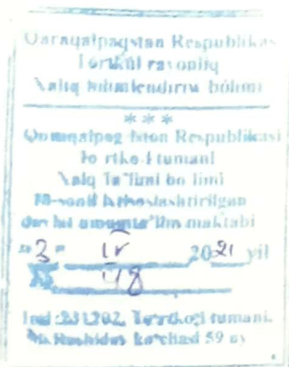 Qaraqalpaqstan Respublikası
Tórtkúl rayonlıq
Xalıq bilimlendiriw bólimi
***
Qoraqalpog'iston Respublikasi
To'rtko'l tumani
Xalq Ta'limi bo'limi
ixtisoslashtirilgan
davlat umumta'lim maktabi
"3" IV 2021 yil
№ 48
Ind: 231202, To'rtko'l tumani.
ko'chasi 59 uy